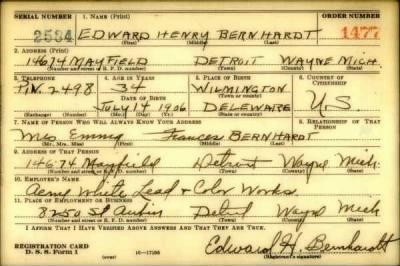 SERIAL NUMBER 1. NAME (Print) ORDER NUMBER
2534 EDWARD HENRY BERNHARDT 1477
(First) (Middle) (Last)
2. ADDRESS (Print)
14674 MAYFIELD DETROIT WAYNE MICH
(Number and street or R. F. D. number) (Town) (County) (State)
3. TELEPHONE 4. AGE IN YEARS 5. PLACE OF BIRTH 6. COUNTRY OF CITIZENSHIP
PIN. 2498 34 WILMINGTON
(Town or county)
DATE OF BIRTH
JULY 14 1906 DELEWARE U.S.
(Exchange) (Number) (Mo.) (Day) (Yr.) (State or country)
7. NAME OF PERSON WHO WILL ALWAYS KNOW YOUR ADDRESS 8. RELATIONSHIP OF THAT PERSON
Mrs Emmy Frances BERNHARDT
(Mr., Mrs., Miss) (First) (Middle) (Last)
9. ADDRESS OF THAT PERSON
14674 Mayfield Detroit Wayne Mich.
(Number and street or R. F. D. number) (Town) (County) (State)
10. EMPLOYER'S NAME
Acme White Lead & Color Works
11. PLACE OF EMPLOYMENT OR BUSINESS
8250 St Aubin Detroit Wayne Mich
(Number and street or R. F. D. number) (Town) (County) (State)
I AFFIRM THAT I HAVE VERIFIED ABOVE ANSWERS AND THAT THEY ARE TRUE.
REGISTRATION CARD
D. S. S. Form 1 (over) Edward H. Bernhardt
(Registrant's signature)